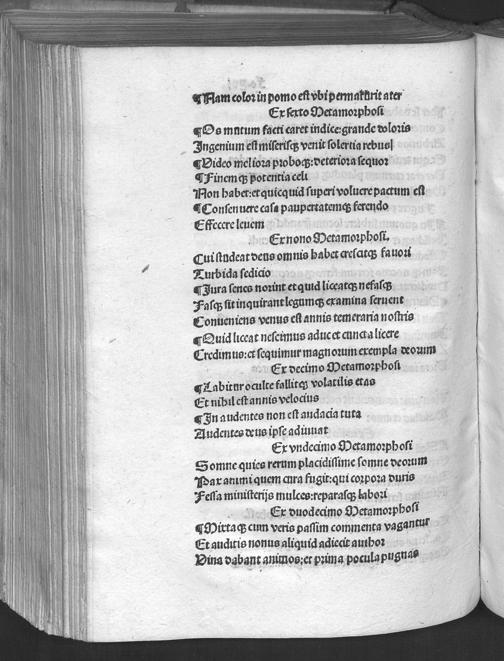 ¶Nam color in pomo est vbi permaturit ater
Ex sexto Metamorphosi
¶Os mutum facti caret indice: grande doloris
Ingenium est miserisq; venit solertia rebus
¶Video meliora proboq;: deteriora sequor
¶Finem q; potentia celi
Non habet: et quicquid superi voluere pactum est
¶Consenuere casa paupertatemq; ferendo
Effecere leuem
Ex nono Metamorphosi.
Cui studeat deus omnis habet crescitq; fauori
Turbida sedicio
¶Iura senes norint et quid liceatq; nefasq;
Fasq; sit inquirant legumq; examina seruent
Conueniens venus est annis temeraria nostris
¶Quid liceat nescimus aduc et cuncta licere
Credimus: et sequimur magnorum exempla deorum
Ex decimo Metamorphosi
¶Labitur occulte fallitq; volatilis etas
Et nihil est annis velocius
¶In audentes non est audacia tuta
Audentes deus ipse adiuuat
Ex vndecimo Metamorphosi
Somne quies rerum placidissime somne deorum
Pax animi quem cura fugit: qui corpora duris
Fessa ministerijs mulces: reparasq; labori
Ex duodecimo Metamorphosi
¶Mixta q; cum veris passim commenta vagantur
Et auditis nonus aliquid adiecit author
Vina dabant animos: et prima pocula pugnas